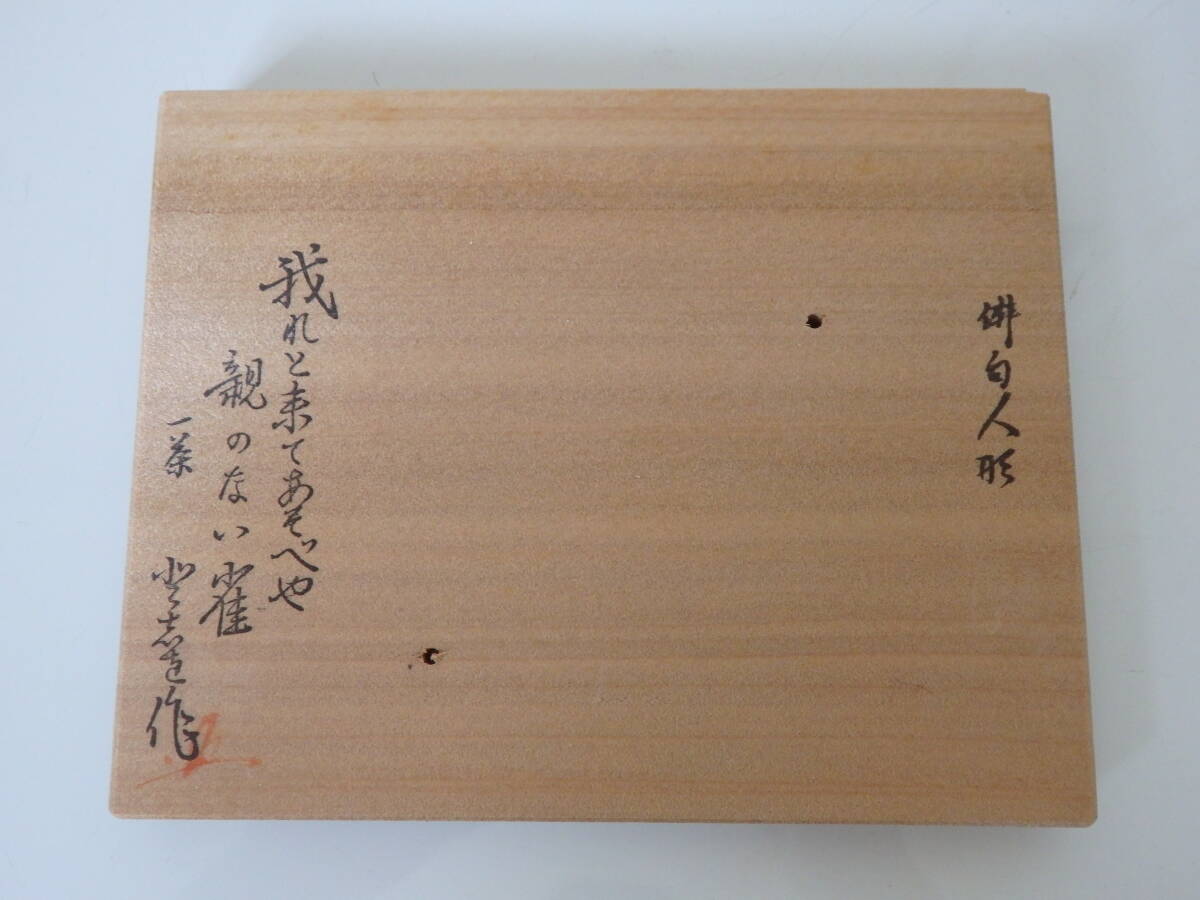 俳句人形
我れと来てあそべや
親のない雀
一茶
作